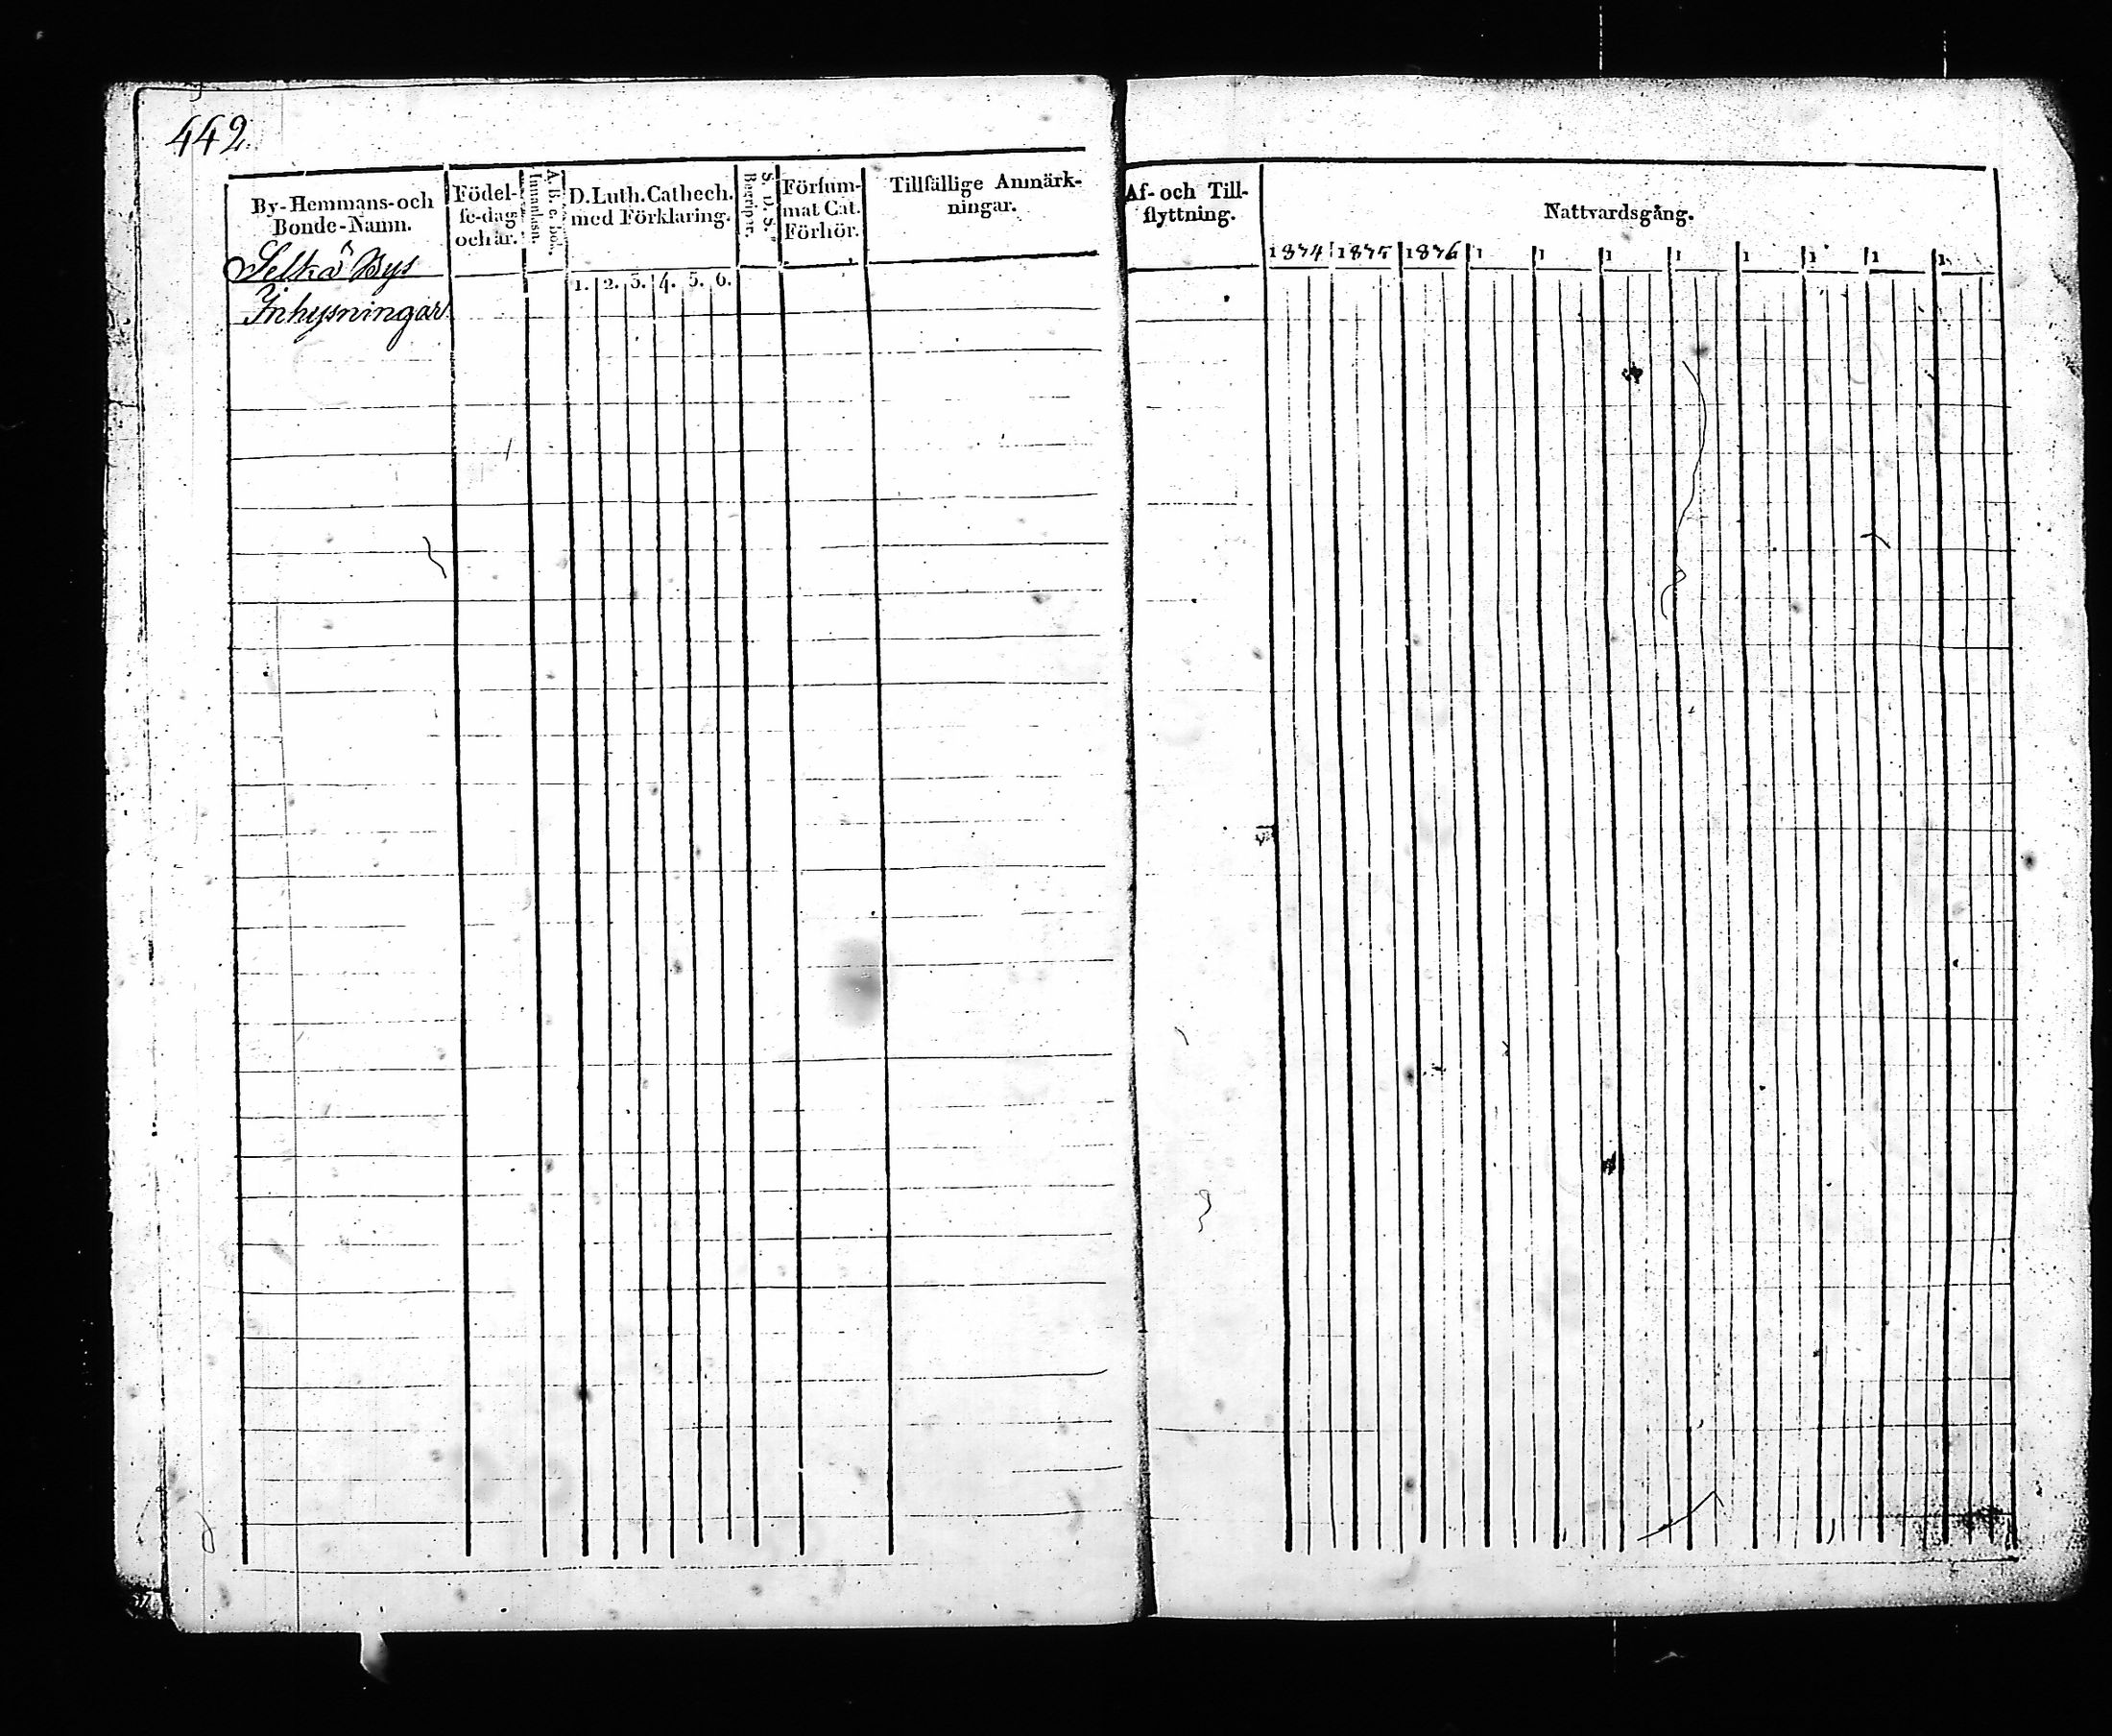 442.
By-Hemmans- och
Bonde-Namn.
Födel-
se-dag
och år.
A. B. c. bok.
Innanläsn.
D. Luth. Cathech.
med Förklaring.
S. D. S.
Begriper.
Försum-
mat Cat.
Förhör.
Tillfällige Anmärk-
ningar.
1. 2. 3. 4. 5. 6.
Selkä Bys
Inhysningar
Af- och Till-
flyttning.
Nattvardsgång.
1834 1835 1836 1 1 1 1 1 1 1 1